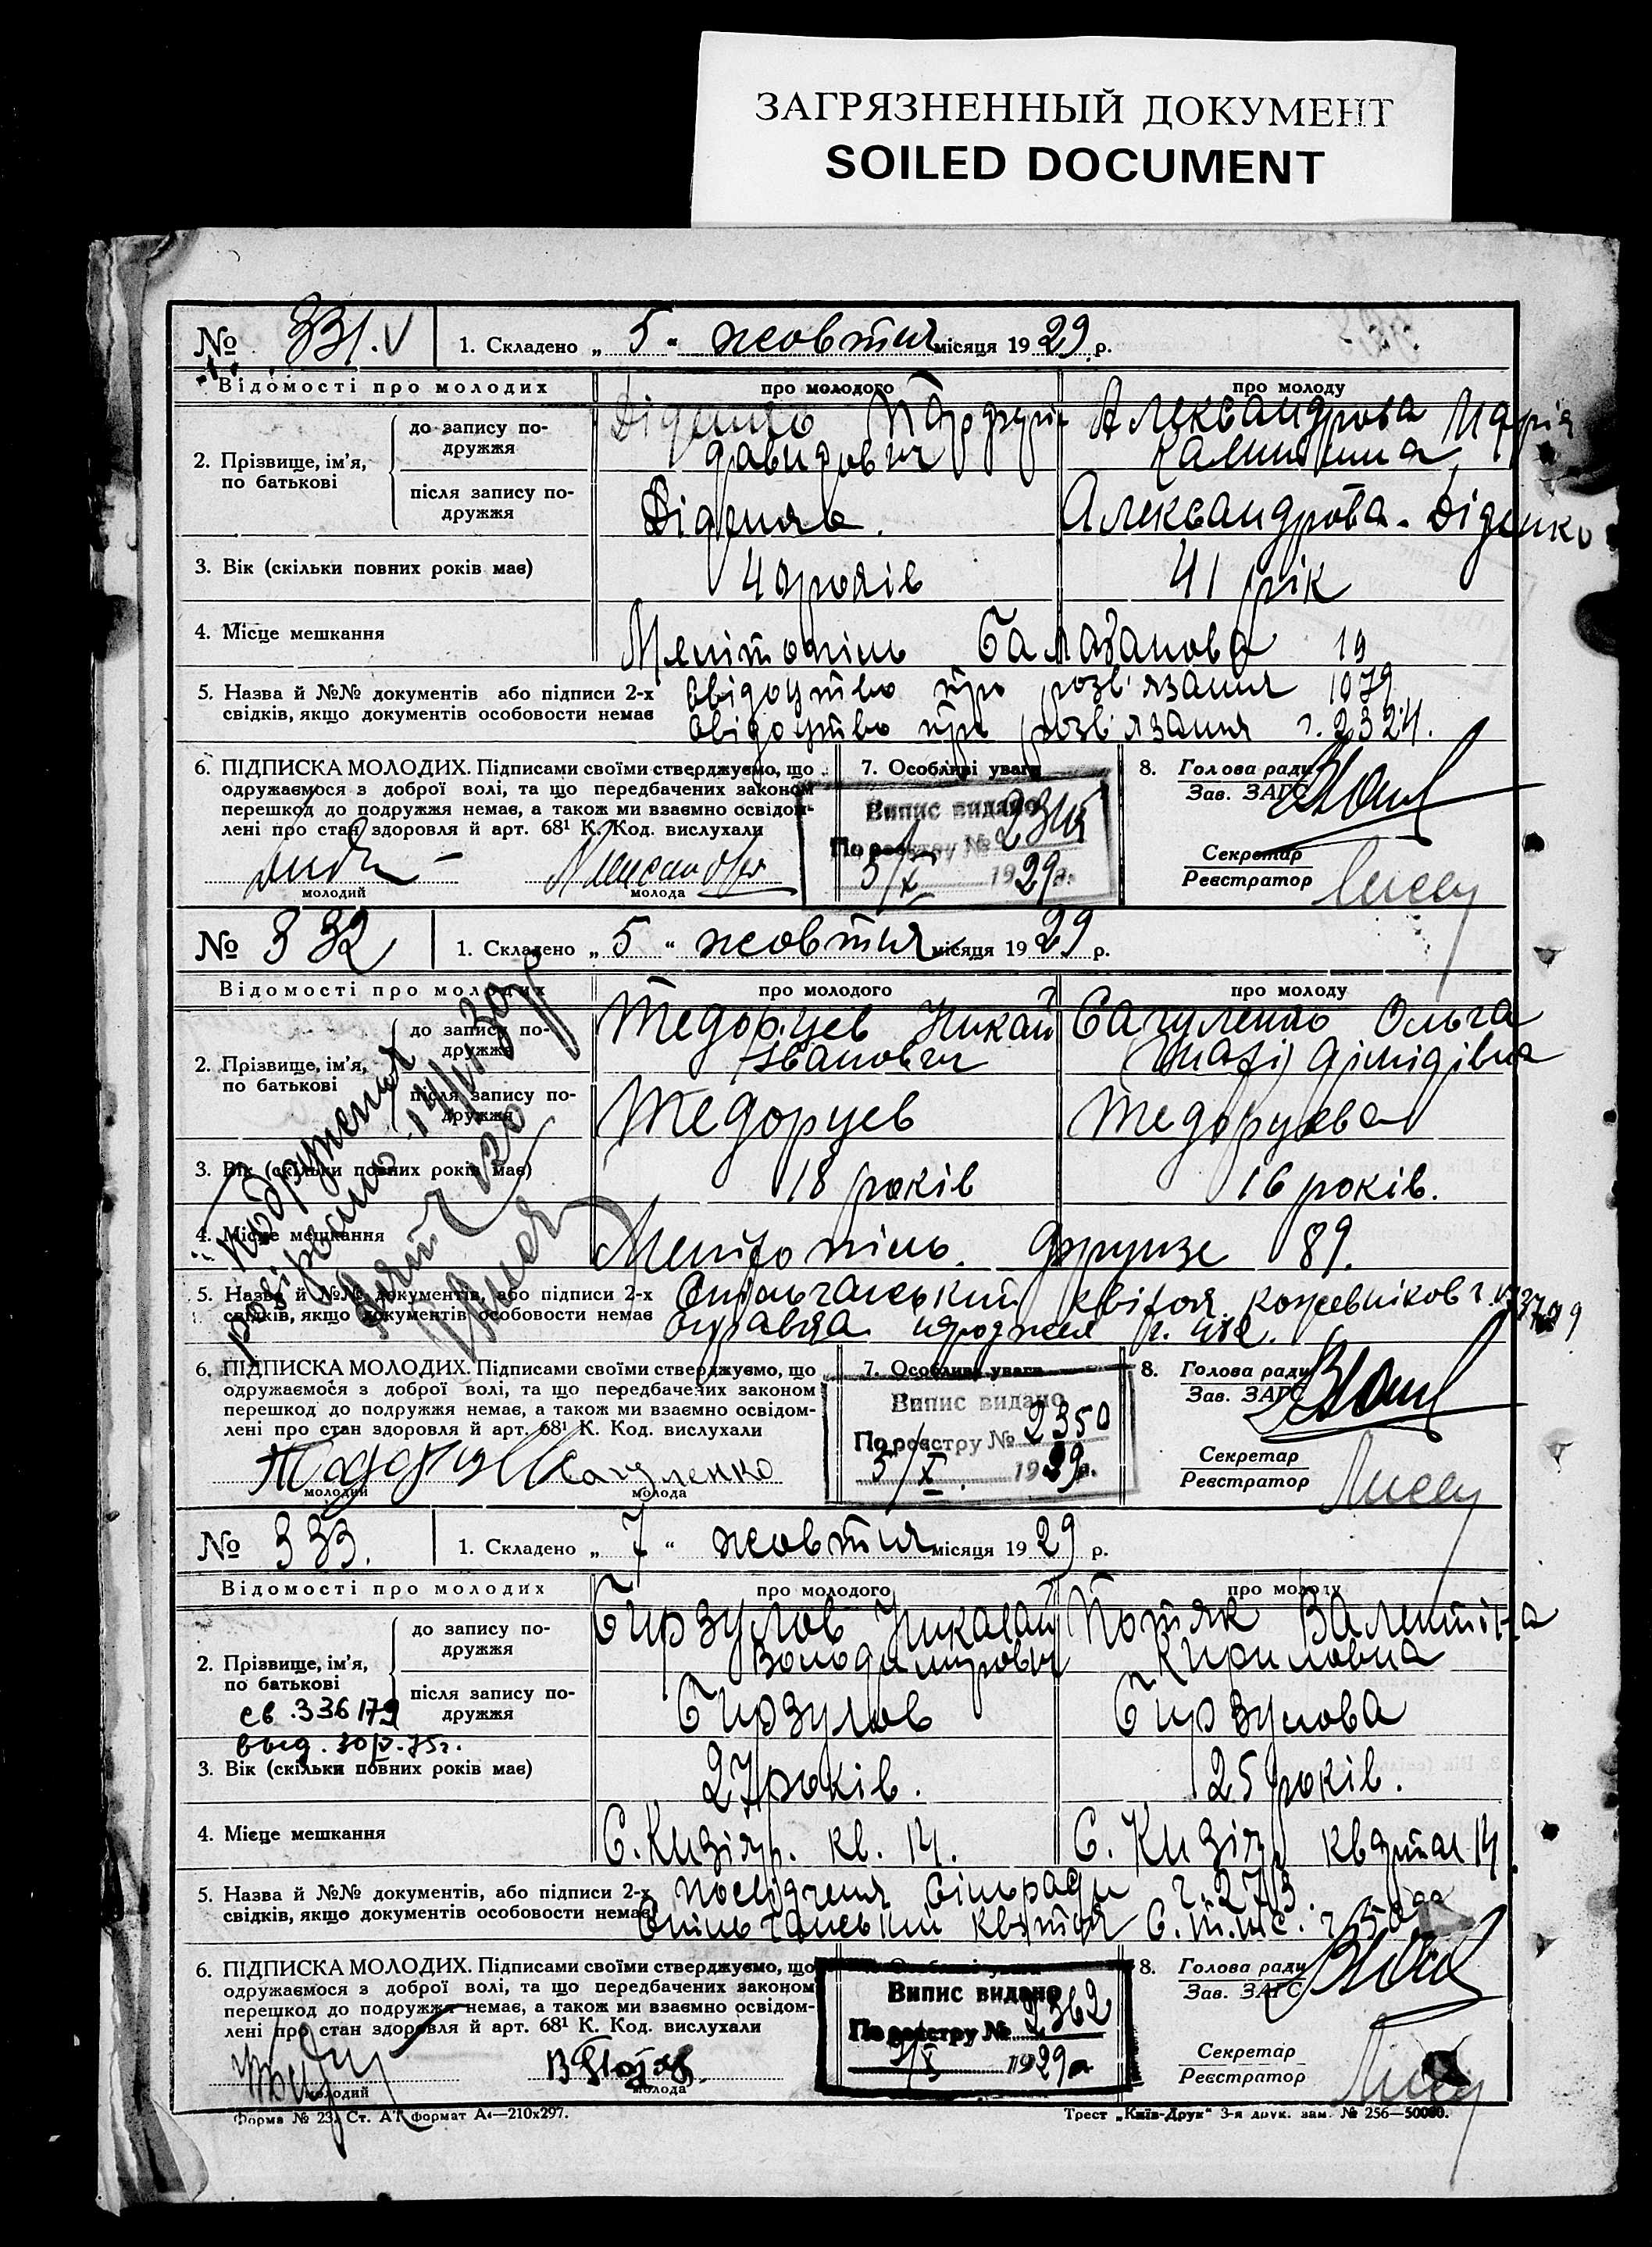 ЗАГРЯЗНЕННЫЙ ДОКУМЕНТ
SOILED DOCUMENT
№ 331. V 1. Складено „ 5 “ жовтня місяця 1929 р.
Відомості про молодих про молодого про молоду
2. Прізвище, ім’я, по батькові
до запису по-дружжя
Діденко Александрова Марія
Давидович
після запису по-дружжя
Діденко. Александрова-Діденко
3. Вік (скільки повних років має) 40 років 41 рік
4. Місце мешкання Мелітопіль 19
5. Назва й №№ документів або підписи 2-х свідоцтво про розв'язання 1079
свідків, якщо документів особовости немає свідоцтво про розв'язання ч. 2324.
6. ПІДПИСКА МОЛОДИХ. Підписами своїми стверджуємо, що 7. Особливі уваги 8. Голова ради
одружаємося з доброї волі, та що передбачених законом Випис видано Зав. ЗАГС
перешкод до подружжя немає, а також ми взаємно освідом-
лені про стан здоровля й арт. 68¹ К. Код. вислухали По реєстру № Секретар
5/X 1929р. Реєстратор
молодий молода
№ 332 1. Складено „ 5 “ жовтня місяця 1929 р.
Відомості про молодих про молодого про молоду
2. Прізвище, ім’я, по батькові
до запису по-дружжя
Тедорцев Ольга
Іванович
після запису по-дружжя
Тедорцев Тедорцева
3. Вік (скільки повних років має) 18 років 16 років.
4. Місце мешкання Мелітопіль. Фрунзе 89.
5. Назва й №№ документів, або підписи 2-х Спільчанський квіток Кожевників
свідків, якщо документів особовости немає
подруження
розірвано
6. ПІДПИСКА МОЛОДИХ. Підписами своїми стверджуємо, що 7. Особливі уваги 8. Голова ради
одружаємося з доброї волі, та що передбачених законом Випис видано Зав. ЗАГС
перешкод до подружжя немає, а також ми взаємно освідом-
лені про стан здоровля й арт. 68¹ К. Код. вислухали По реєстру № 2350 Секретар
5/X. 1929р. Реєстратор
молодий молода
№ 333. 1. Складено „ 7 “ жовтня місяця 1929 р.
Відомості про молодих про молодого про молоду
2. Прізвище, ім’я, по батькові
до запису по-дружжя
Бирзулов Николай Потяк Валентіна
Володимирович Кириловна
після запису по-дружжя
Бирзулов Бирзулова
св. 336179
выд. 30/V-75г.
3. Вік (скільки повних років має) 27 років. 25 років.
4. Місце мешкання С. Кизіяр. кв. 14. С. Кизіяр квартал 14
5. Назва й №№ документів, або підписи 2-х посвідченя сільради ч. 273.
свідків, якщо документів особовости немає Спільчанський квіток
6. ПІДПИСКА МОЛОДИХ. Підписами своїми стверджуємо, що 7. Особливі уваги 8. Голова ради
одружаємося з доброї волі, та що передбачених законом Випис видано Зав. ЗАГС
перешкод до подружжя немає, а також ми взаємно освідом-
лені про стан здоровля й арт. 68¹ К. Код. вислухали По реєстру № 2362 Секретар
1929р. Реєстратор
молодий молода
Форма № 23. Ст. АТ формат А4—210х297. Трест „Київ-Друк“ 3-я друк. зам. № 256—50000.